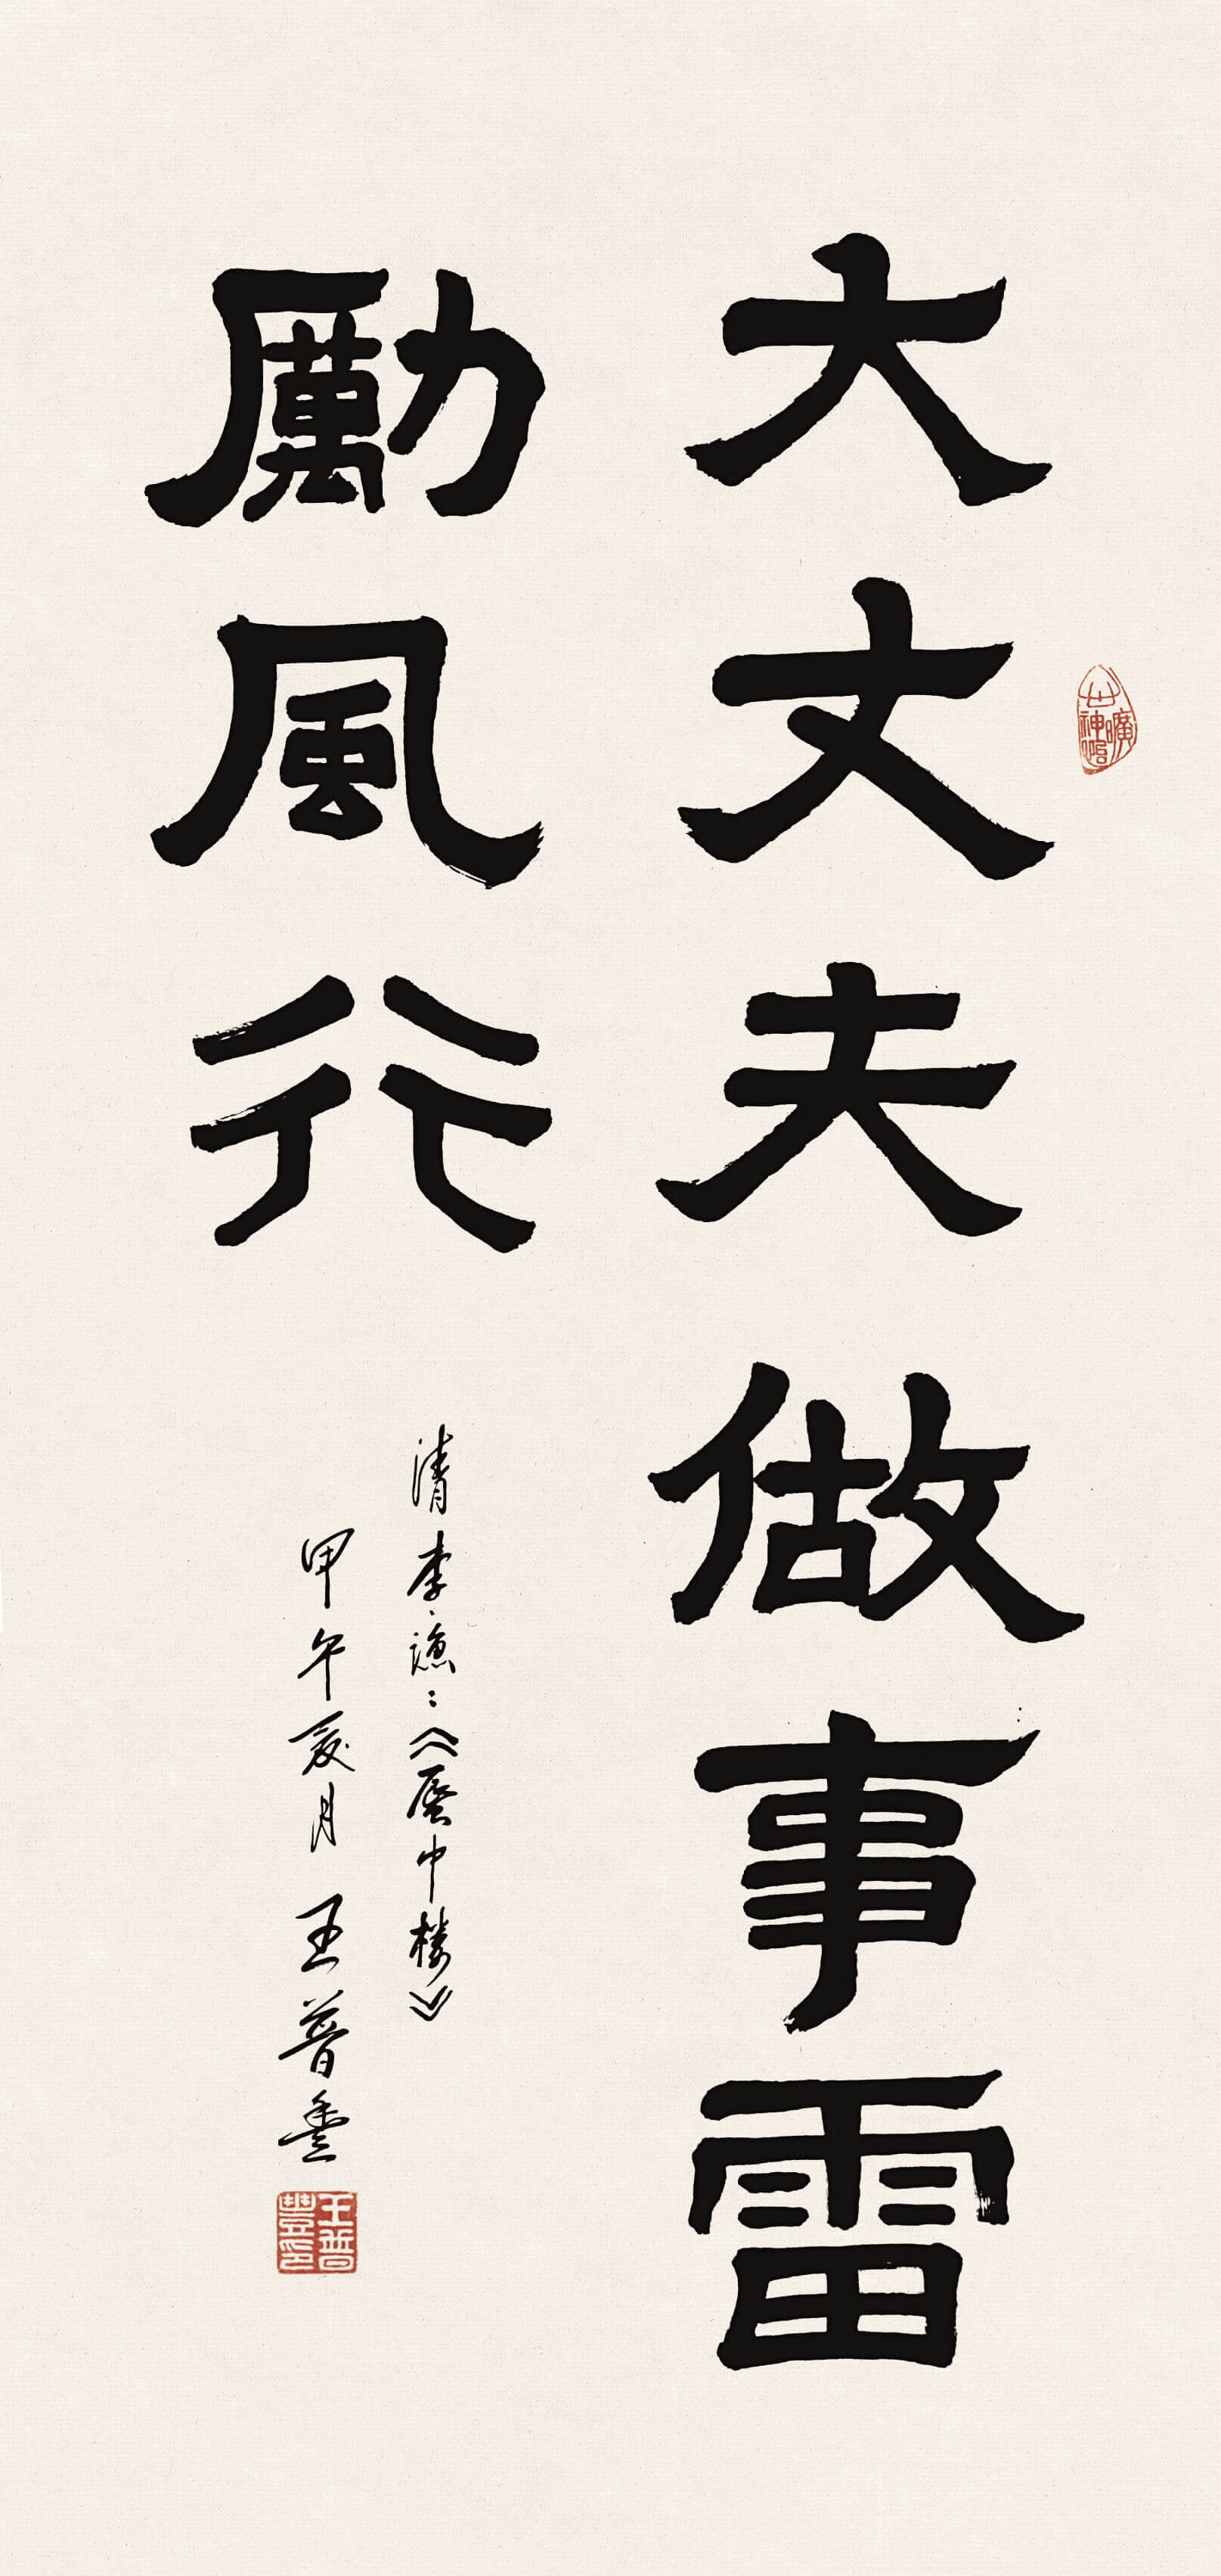 大丈夫做事雷
勵風行
清李漁：《蜃中樓》
甲午夏月 王普豐
王普豐印